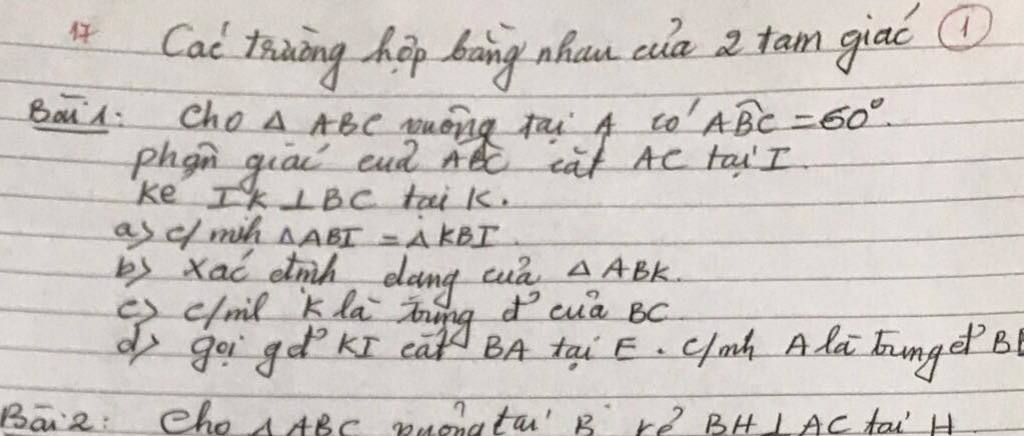 17 Các trường hợp bằng nhau của 2 tam giác 1
Bài 1: Cho Δ ABC vuông tại A có ABC = 60°.
phân giác của ABC cắt AC tại I
Kẻ IK ⊥ BC tại K.
a) c/minh ΔABI = ΔKBI.
b) Xác định dạng của Δ ABK.
c) c/m K là trung đ' của BC
d) gọi gđ' KI cắt BA tại E. C/mh A là trung đ' BE
Bài 2: Cho Δ ABC vuông tại B kẻ BH ⊥ AC tại H